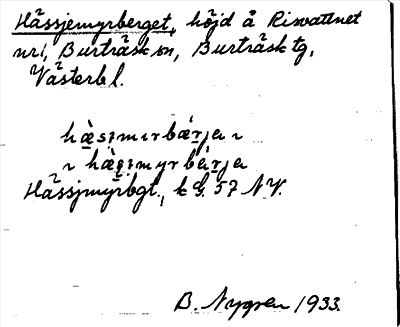 Hässjemyrberget, höjd å Risvattnet
nr 1, Burträsk sn, Burträsk tg,
Västerbl.
hæ̀simırbær̀ja ı
ı hæ̀ṣı̣myrbær̀ja
Hässjmyrbgt., k G. 57 NV.
B. Nygren 1933.